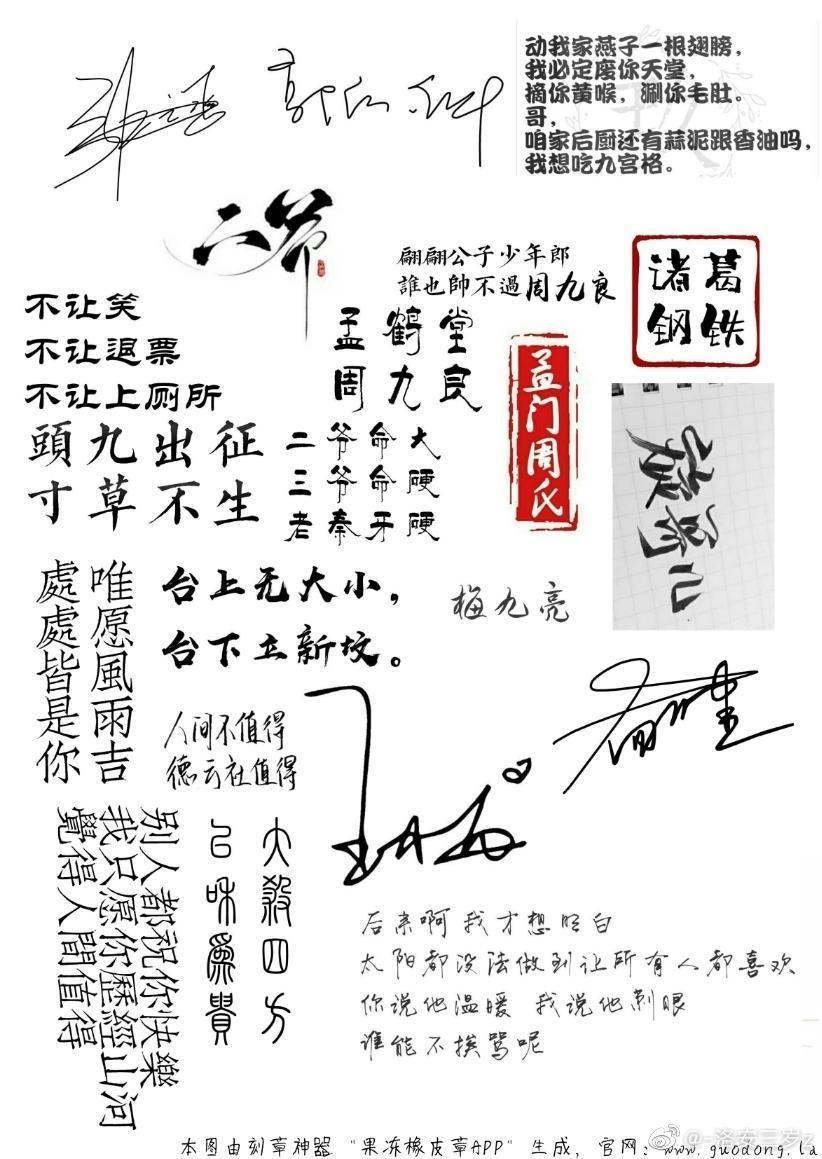 动我家燕子一根翅膀，
我必定废你天堂，
摘你黄喉，涮你毛肚。
哥，
咱家后厨还有蒜泥跟香油吗，
我想吃九宫格。
二爷
翩翩公子少年郎
誰也帥不過周九良
诸葛
钢铁
不让笑
不让退票
不让上厕所
孟鹤堂
周九良
孟门周氏
頭九出征
寸草不生
二爷命大
三爷命硬
老秦牙硬
唯愿風雨吉
處處皆是你
台上无大小，
台下立新坟。
梅九亮
人间不值得
德云社值得
别人都祝你快樂
我只愿你歷經山河
覺得人間值得
大殺四方
以和為貴
后来啊我才想明白
太阳都没法做到让所有人都喜欢
你说他温暖 我说他刺眼
谁能不挨骂呢
本图由刻章神器"果冻橡皮章APP"生成，官网：www.guodong.la
@-洛安三岁z